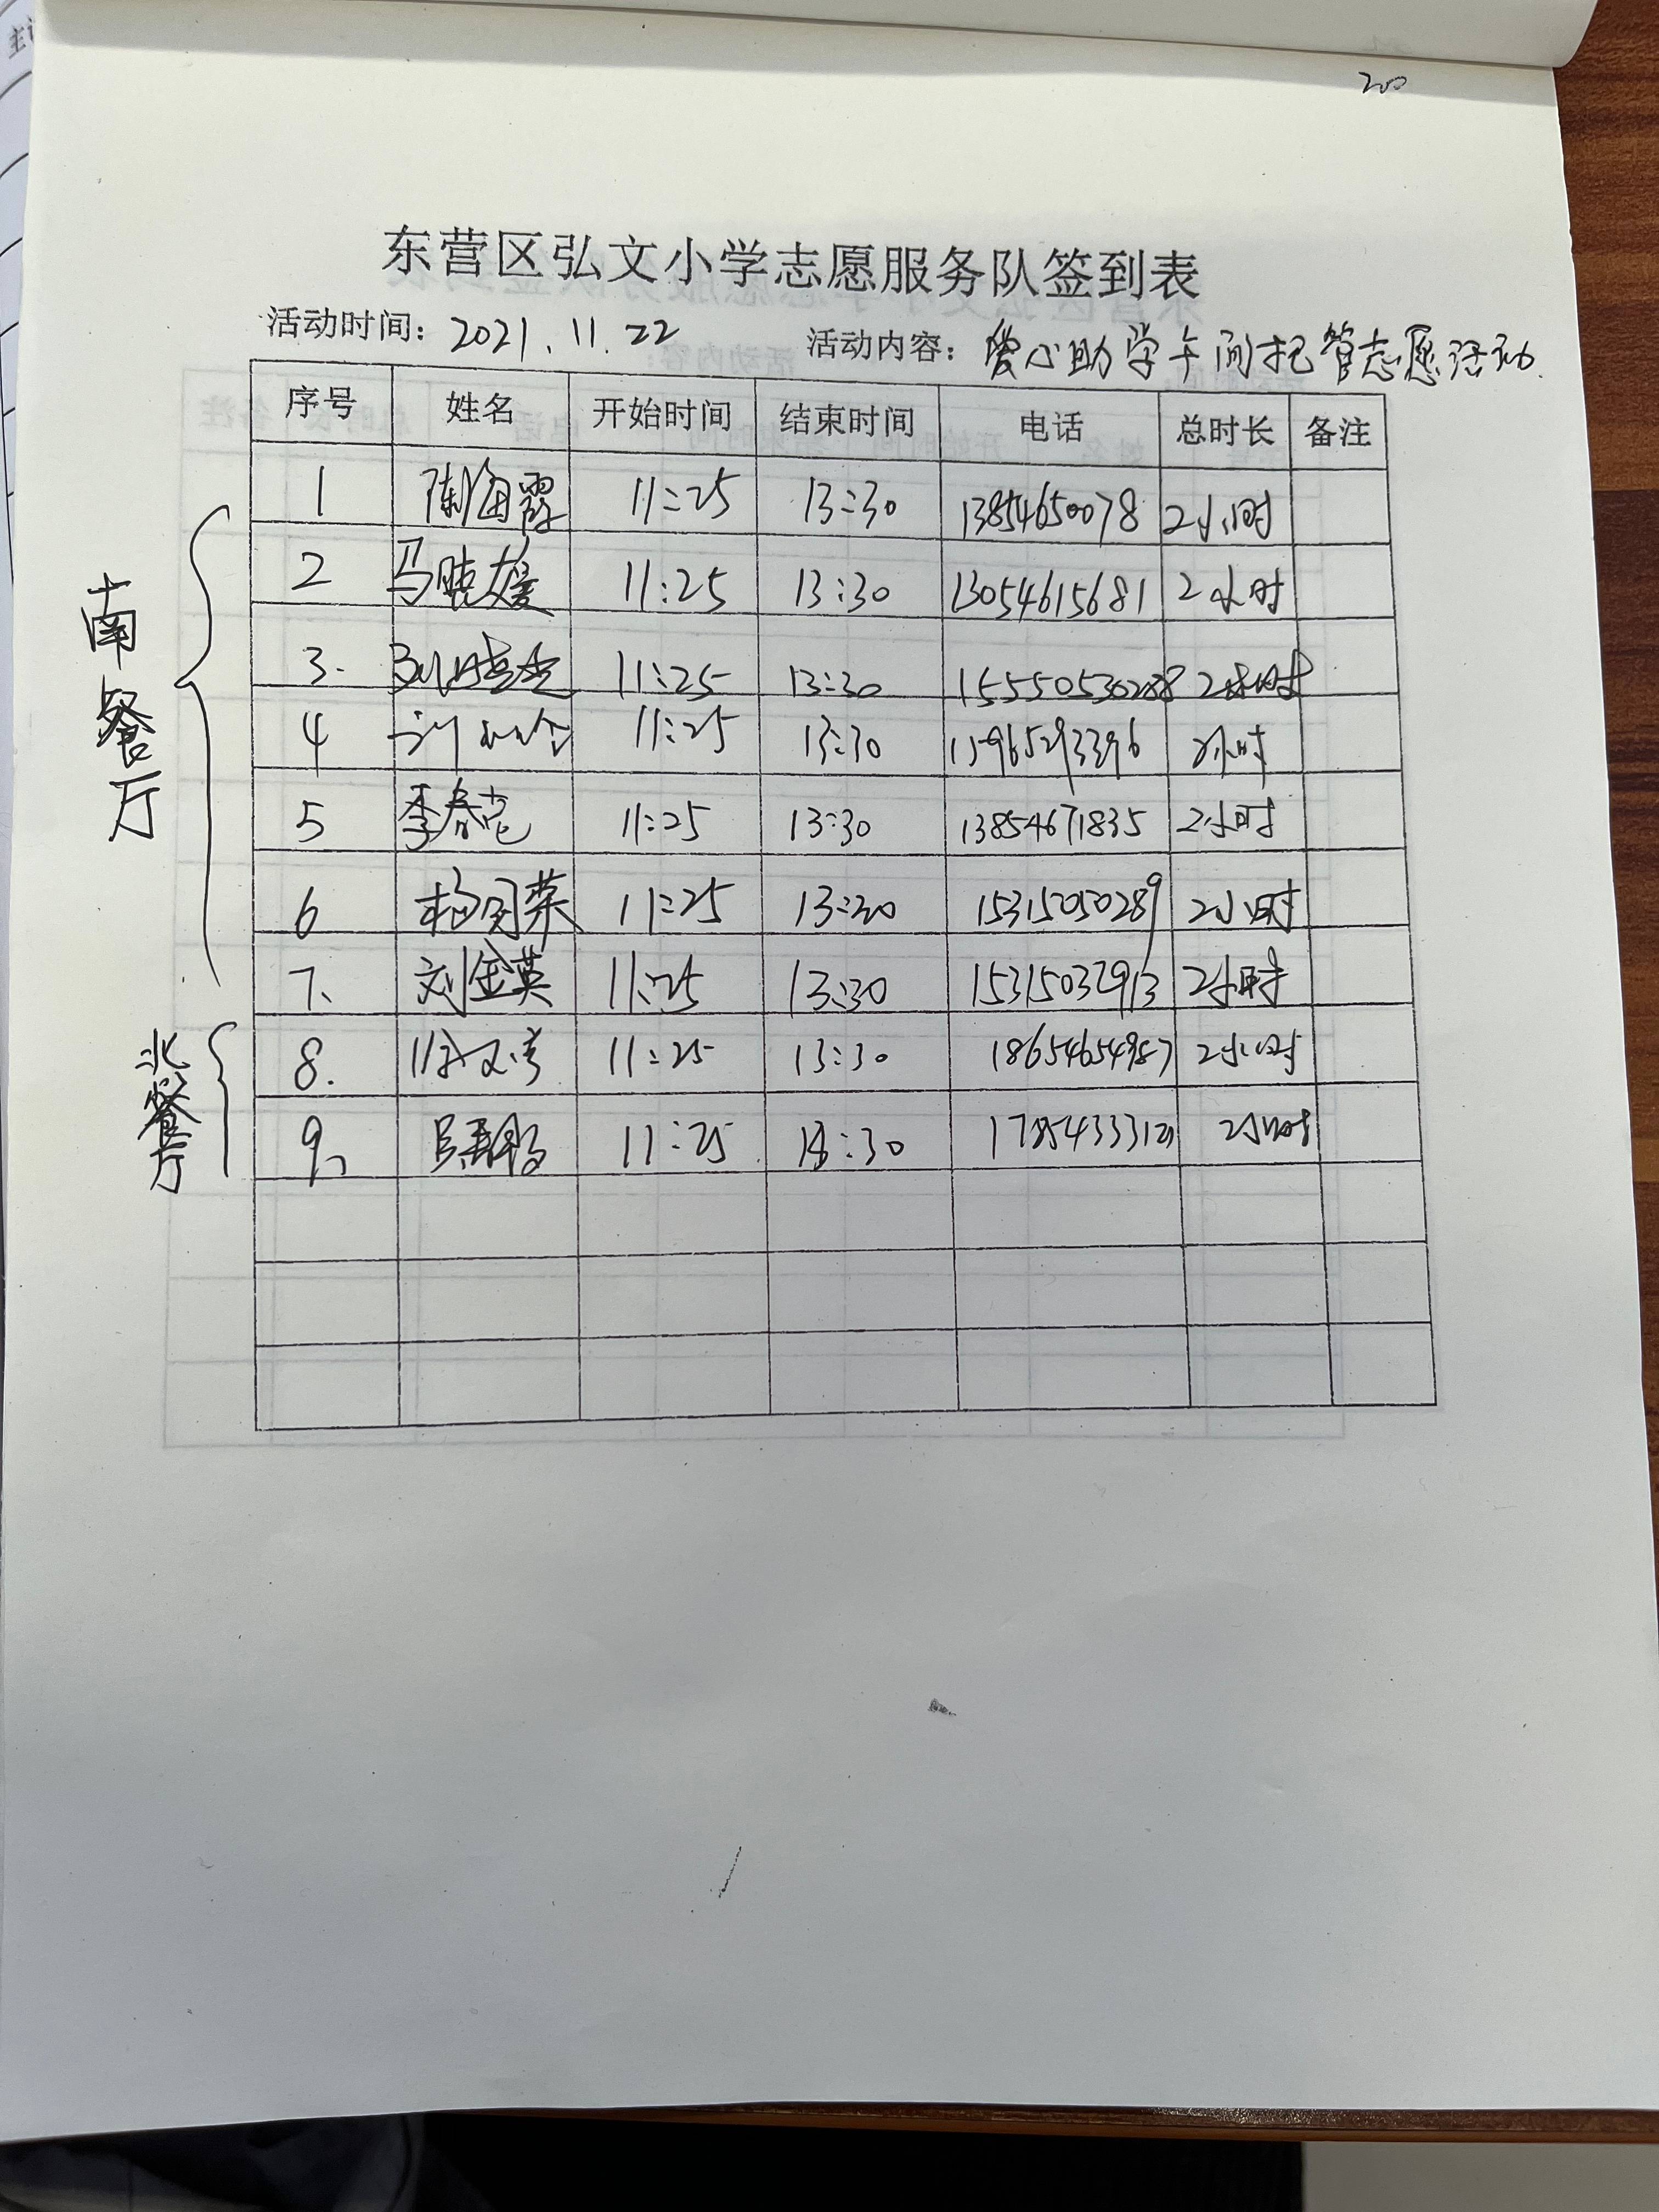 200
东营区弘文小学志愿服务队签到表
活动时间：2021.11.22 活动内容：爱心助学午间托管志愿活动.
序号 姓名 开始时间 结束时间 电话 总时长 备注
南餐厅
1 陈海霞 11:25 13:30 13854650078 2小时
2 马晓媛 11:25 13:30 13054615681 2小时
3. 11:25 13:30 15550530288 2小时
4 11:25 13:30 15965293396 2小时
5 李春花 11:25 13:30 13854671835 2小时
6 11:25 13:30 15315050289 2小时
7、 刘金英 11:25 13:30 15315032913 2小时
北餐厅
8. 11:25 13:30 18654654987 2小时
9、 11:25 13:30 2小时